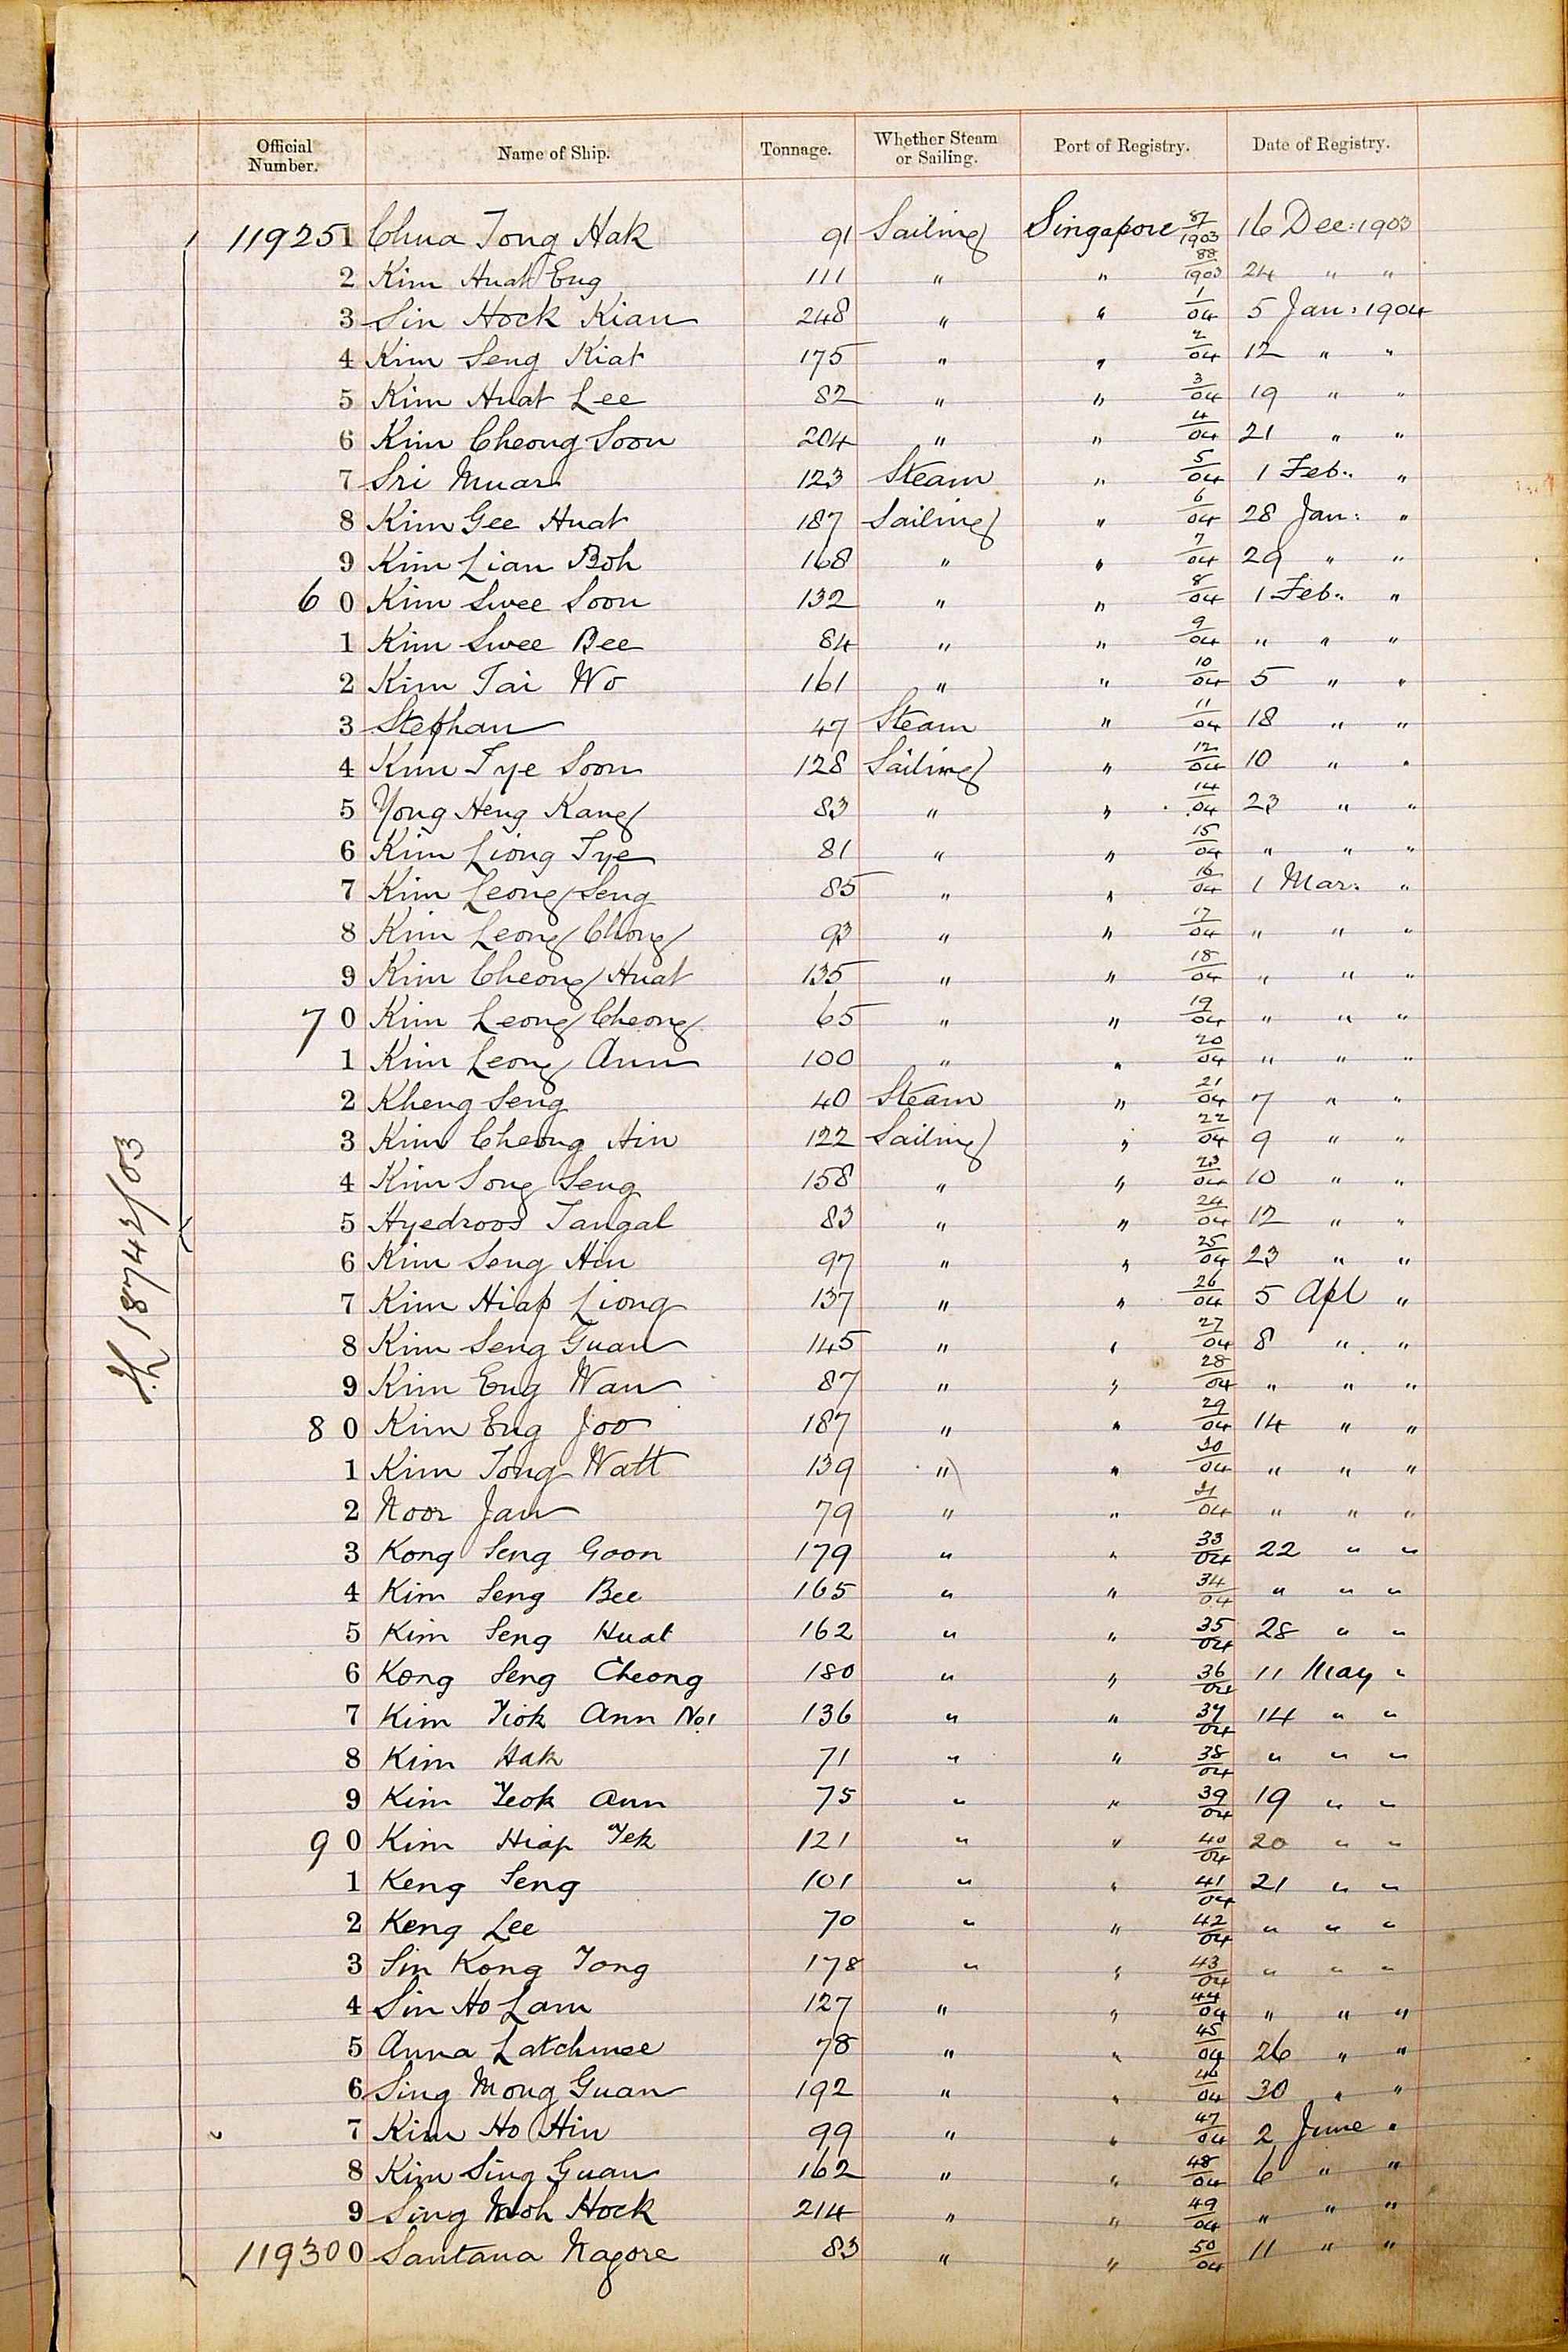 Official Number. Name of Ship. Tonnage. Whether Steam or Sailing. Port of Registry. Date of Registry.
119251 Chua Tong Hak 91 Sailing Singapore 87/1903 16 Dec: 1903
2 Kim Huat Eng 111 " " 88/1903 24 " "
3 Sin Hock Kian 248 " " 1/04 5 Jan: 1904
4 Kim Seng Kiat 175 " " 2/04 12 " "
5 Kim Huat Lee 82 " " 3/04 19 " "
6 Kim Cheong Soon 204 " " 4/04 21 " "
7 Sri Muar 123 Steam " 5/04 1 Feb: "
8 Kim Gee Huat 187 Sailing " 6/04 28 Jan: "
9 Kim Lian Boh 168 " " 7/04 29 " "
60 Kim Swee Soon 132 " " 8/04 1 Feb: "
1 Kim Swee Bee 84 " " 9/04 " " "
2 Kim Tai Wo 161 " " 10/04 5 " "
3 Stephan 47 Steam " 11/04 18 " "
4 Kim Tye Soon 128 Sailing " 12/04 10 " "
5 Yong Heng Kang 83 " " 14/04 23 " "
6 Kim Liong Tye 81 " " 15/04 " " "
7 Kim Leong Seng 85 " " 16/04 1 Mar: "
8 Kim Leong Chong 93 " " 17/04 " " "
9 Kim Cheong Huat 135 " " 18/04 " " "
70 Kim Leong Cheong 65 " " 19/04 " " "
1 Kim Leong Ann 100 " " 20/04 " " "
2 Kheng Seng 40 Steam " 21/04 7 " "
3 Kim Cheong Hin 122 Sailing " 22/04 9 " "
4 Kim Song Seng 158 " " 23/04 10 " "
5 Hyedroos Tangal 83 " " 24/04 12 " "
6 Kim Seng Hin 97 " " 25/04 23 " "
7 Kim Hiap Liong 137 " " 26/04 5 Apl "
8 Kim Seng Guan 145 " " 27/04 8 " "
9 Kim Eng Wan 87 " " 28/04 " " "
80 Kim Eng Joo 187 " " 29/04 14 " "
1 Kim Tong Watt 139 " " 30/04 " " "
2 Noor Jan 79 " " 31/04 " " "
3 Kong Seng Goon 179 " " 33/04 22 " "
4 Kim Seng Bee 165 " " 34/04 " " "
5 Kim Seng Huat 162 " " 35/04 28 " "
6 Kong Seng Cheong 180 " " 36/04 11 May "
7 Kim Yiok Ann No1 136 " " 37/04 14 " "
8 Kim Hak 71 " " 38/04 " " "
9 Kim Yeok Ann 75 " " 39/04 19 " "
90 Kim Hiap Yek 121 " " 40/04 20 " "
1 Keng Seng 101 " " 41/04 21 " "
2 Keng Lee 70 " " 42/04 " " "
3 Sin Kong Tong 178 " " 43/04 " " "
4 Sin Ho Lam 127 " " 44/04 " " "
5 Anna Latchmee 78 " " 45/04 26 " "
6 Sing Mong Guan 192 " " 46/04 30 " "
7 Kim Ho Hin 99 " " 47/04 2 June "
8 Kim Sing Guan 162 " " 48/04 6 " "
9 Sing Moh Hock 214 " " 49/04 " " "
119300 Santana Nagore 83 " " 50/04 11 " "
18742/03